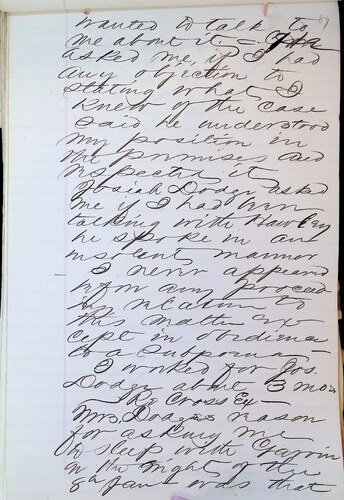 89
wanted to talk to
me about it. – He
asked me if I had
any objection to
stating what I
knew of the case
said he understood
my position in
the premises and
respected it
Josiah Dodge asked
me if I had been
talking with Hawley
he spoke in an
insolent manner
I never appeared
upon any proceed
in relation to
this matter ex-
cept in obedience
to a subpoena –
I worked for Jos.
Dodge about 3 mos
Re Cross Ex –
Mrs. Dodges reason
for asking me
to sleep with
on the night of the
8th Jan was that